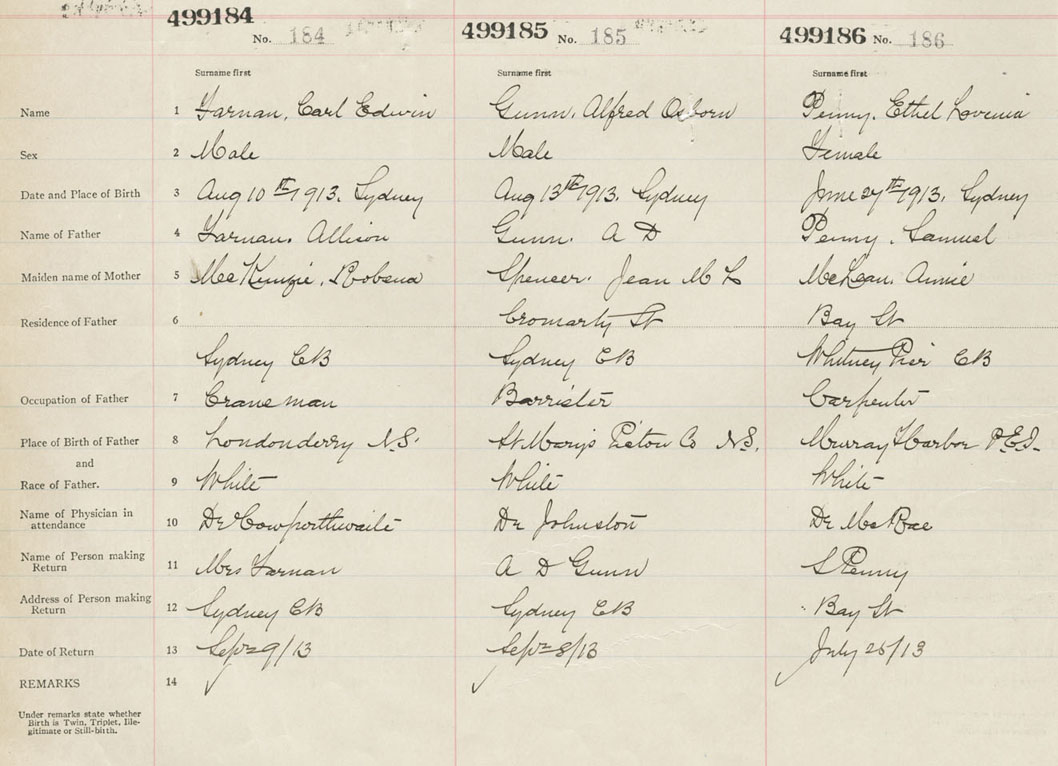 499184 No. 184 499185 No. 185 499186 No. 186
Surname first Surname first Surname first
Name 1 Farnan, Carl Edwin Gunn, Alfred Osborn Penny, Ethel Lovenia
Sex 2 Male Male Female
Date and Place of Birth 3 Aug 10th 1913. Sydney Aug 13th 1913. Sydney June 27th 1913. Sydney
Name of Father 4 Farnan. Allison Gunn. A D Penny. Samuel
Maiden name of Mother 5 McKenzie, Robena Spencer. Jean M L McLean. Annie
Residence of Father 6 Cromarty St Bay St
Sydney CB Sydney CB Whitney Pier CB
Occupation of Father 7 Craneman Barrister Carpenter
Place of Birth of Father 8 Londonderry N.S. St Marys Pictou Co N.S. Murray Harbor P.E.I.
and
Race of Father. 9 White White White
Name of Physician in
attendance 10 Dr Cowperthwaite Dr Johnston Dr McRae
Name of Person making
Return 11 Mrs Farnan A D Gunn S Penny
Address of Person making
Return 12 Sydney CB Sydney CB Bay St
Date of Return 13 Sept 9/13 Sept 8/13 July 25/13
REMARKS 14
Under remarks state whether
Birth is Twin, Triplet, Ille-
gitimate or Still-birth.